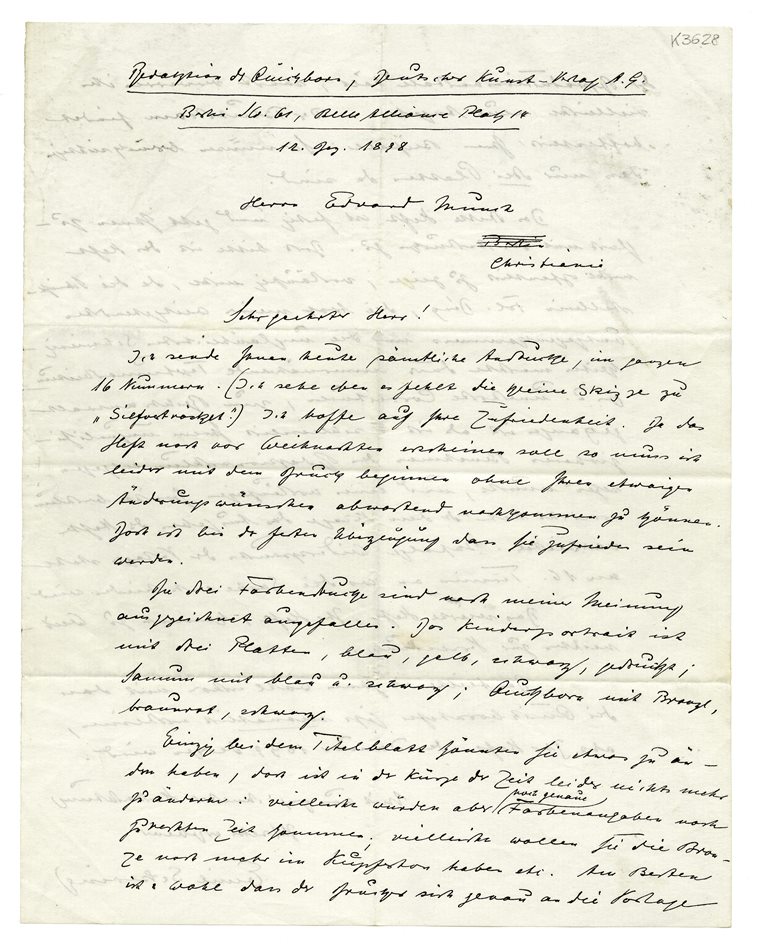 K3628
Redaktion des Quickborn, Deutscher Kunst-Verlag A.G.
Berlin S.W. 61, Belle Alliance Platz 18
12. Dez. 1898
Herrn Edvard Munch
Berlin
Christiania
Sehr geehrter Herr!
Ich sende Ihnen heute sämtliche Andrucke, im ganzen
16 Nummern. (Ich sehe eben es fehlt die kleine Skizze zu
„Silfversträcket“.) Ich hoffe auf Ihre Zufriedenheit. Da das
Heft noch vor Weihnachten erscheinen soll so muss ich
leider mit dem Druck beginnen ohne Ihren etwaigen
Änderungswünschen abwartend nachkommen zu können.
Doch ich bin der festen Überzeugung dass Sie zufrieden sein
werden.
Die drei Farbendrucke sind nach meiner Meinung
ausgezeichnet ausgefallen. Das Kinderportrait ist
mit drei Platten, blau, gelb, schwarz, gedruckt;
Samum mit blau u. schwarz; Quickborn mit Bronze,
braunrot, schwarz.
Einzig bei dem Titelblatt könnten Sie etwas zu än-
dern haben, doch ist in der Kürze der Zeit leider nichts mehr
zu ändern: vielleicht würden aber noch genaue Farbenangaben noch
zu rechten Zeit kommen; vielleicht wollen Sie die Bron-
ze noch mehr im Kupferton haben etc. Am Besten
ist's wohl dass der Drucker sich genau an die Vorlage